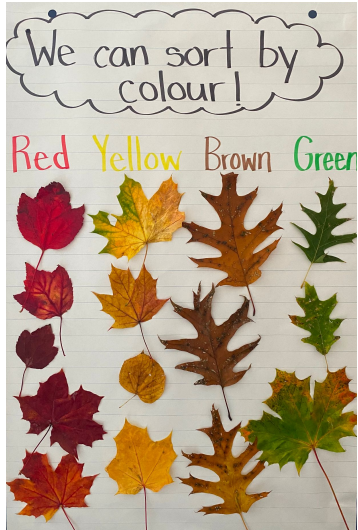 We can sort by
colour!
Red Yellow Brown Green